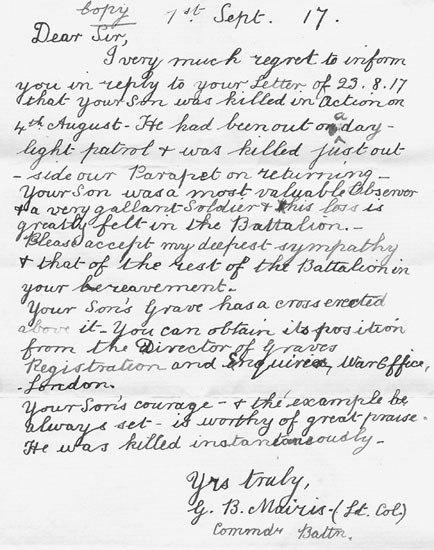 Copy 1st. Sept. 17.
Dear Sir,
I very much regret to inform
you in reply to your Letter of 23.8.17
that your Son was killed in Action on
4th August - He had been out on a day-
light patrol & was killed just out
- side our Parapet on returning -
Your Son was a most valuable Observer
& a very gallant Soldier & his loss is
greatly felt in the Battalion. -
Please accept my deepest sympathy
& that of the rest of the Battalion in
your bereavement. -
Your Son's Grave has a cross erected
above it - You can obtain its position
from the Director of Graves
Registration and Enquiries, War Office,
- London.
Your Son's courage - & the example he
always set - is worthy of great praise.
He was killed instantaneously -
Yrs truly,
G. B. Mairis - (Lt. Col)
Commdr Battn.